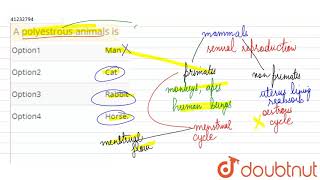 41232794
A polyestrous animals is
Option1 Man
Option2 Cat
Option3 Rabbit
Option4 Horse.
mammals
sexual reproduction
primates
non primates
monkeys, apes
human beings
uterus lining
reabsorb
oestrous
cycle
menstrual
cycle
menstrual
flow
doubtnut